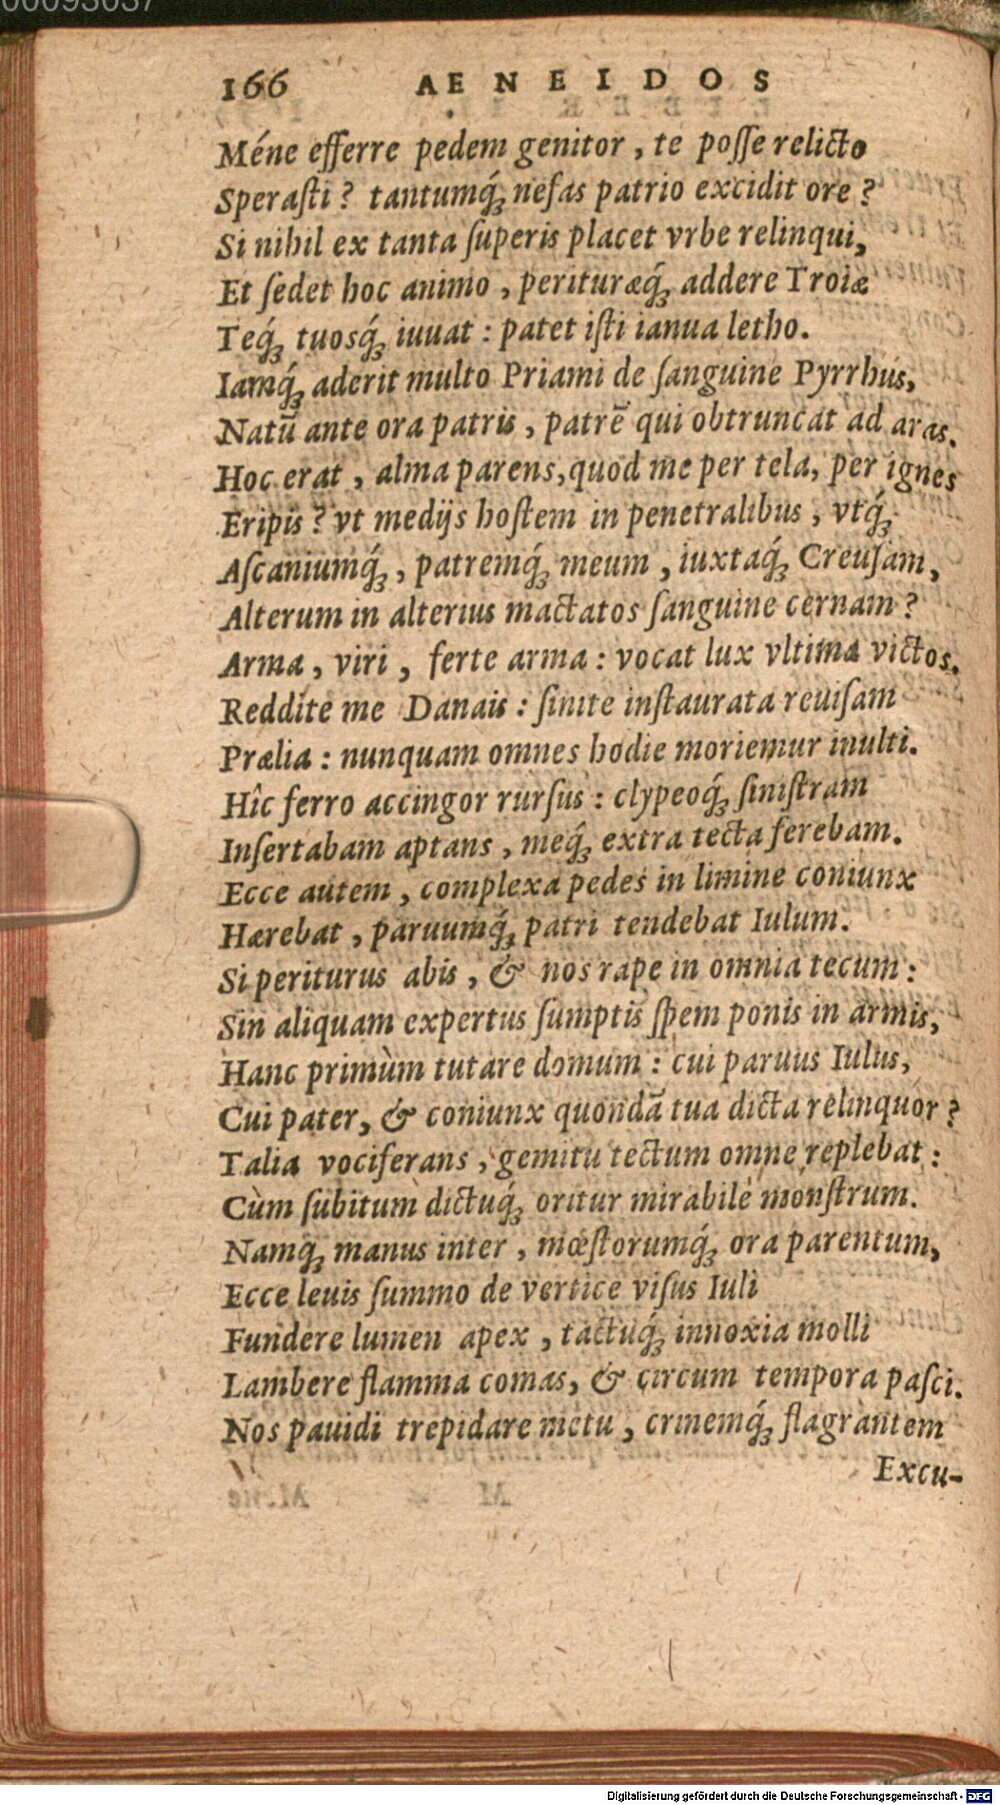 00093037
166 AENEIDOS
Méne efferre pedem genitor, te poſſe relicto
Speraſti? tantumq́ꝫ nefas patrio excidit ore?
Si nihil ex tanta ſuperis placet vrbe relinqui,
Et ſedet hoc animo, perituræq́ꝫ addere Troiæ
Teq́ꝫ tuosq́ꝫ iuuat: patet iſti ianua letho.
Iamq́ꝫ aderit multo Priami de ſanguine Pyrrhus,
Natū ante ora patris, patrē qui obtruncat ad aras.
Hoc erat, alma parens, quod me per tela, per ignes
Eripis? vt medijs hoſtem in penetralibus, vtq́ꝫ
Aſcaniumq́ꝫ, patremq́ꝫ meum, iuxtaq́ꝫ Creuſam,
Alterum in alterius mactatos ſanguine cernam?
Arma, viri, ferte arma: vocat lux vltima victos.
Reddite me Danais: ſinite inſtaurata reuiſam
Prælia: nunquam omnes hodie moriemur inulti.
Hîc ferro accingor rurſus: clypeoq́ꝫ ſiniſtram
Inſertabam aptans, meq́ꝫ extra tecta ferebam.
Ecce autem, complexa pedes in limine coniunx
Hærebat, paruumq́ꝫ patri tendebat Iulum.
Si periturus abis, & nos rape in omnia tecum:
Sin aliquam expertus ſumptis ſpem ponis in armis,
Hanc primùm tutare domum: cui paruus Iulus,
Cui pater, & coniunx quondā tua dicta relinquor?
Talia vociferans, gemitu tectum omne replebat:
Cùm ſubitum dictuq́ꝫ oritur mirabile monſtrum.
Namq́ꝫ manus inter, mœſtorumq́ꝫ ora parentum,
Ecce leuis ſummo de vertice viſus Iuli
Fundere lumen apex, tactuq́ꝫ innoxia molli
Lambere flamma comas, & circum tempora paſci.
Nos pauidi trepidare metu, crinemq́ꝫ flagrantem
Excu-
Digitalisierung gefördert durch die Deutsche Forschungsgemeinschaft - DFG